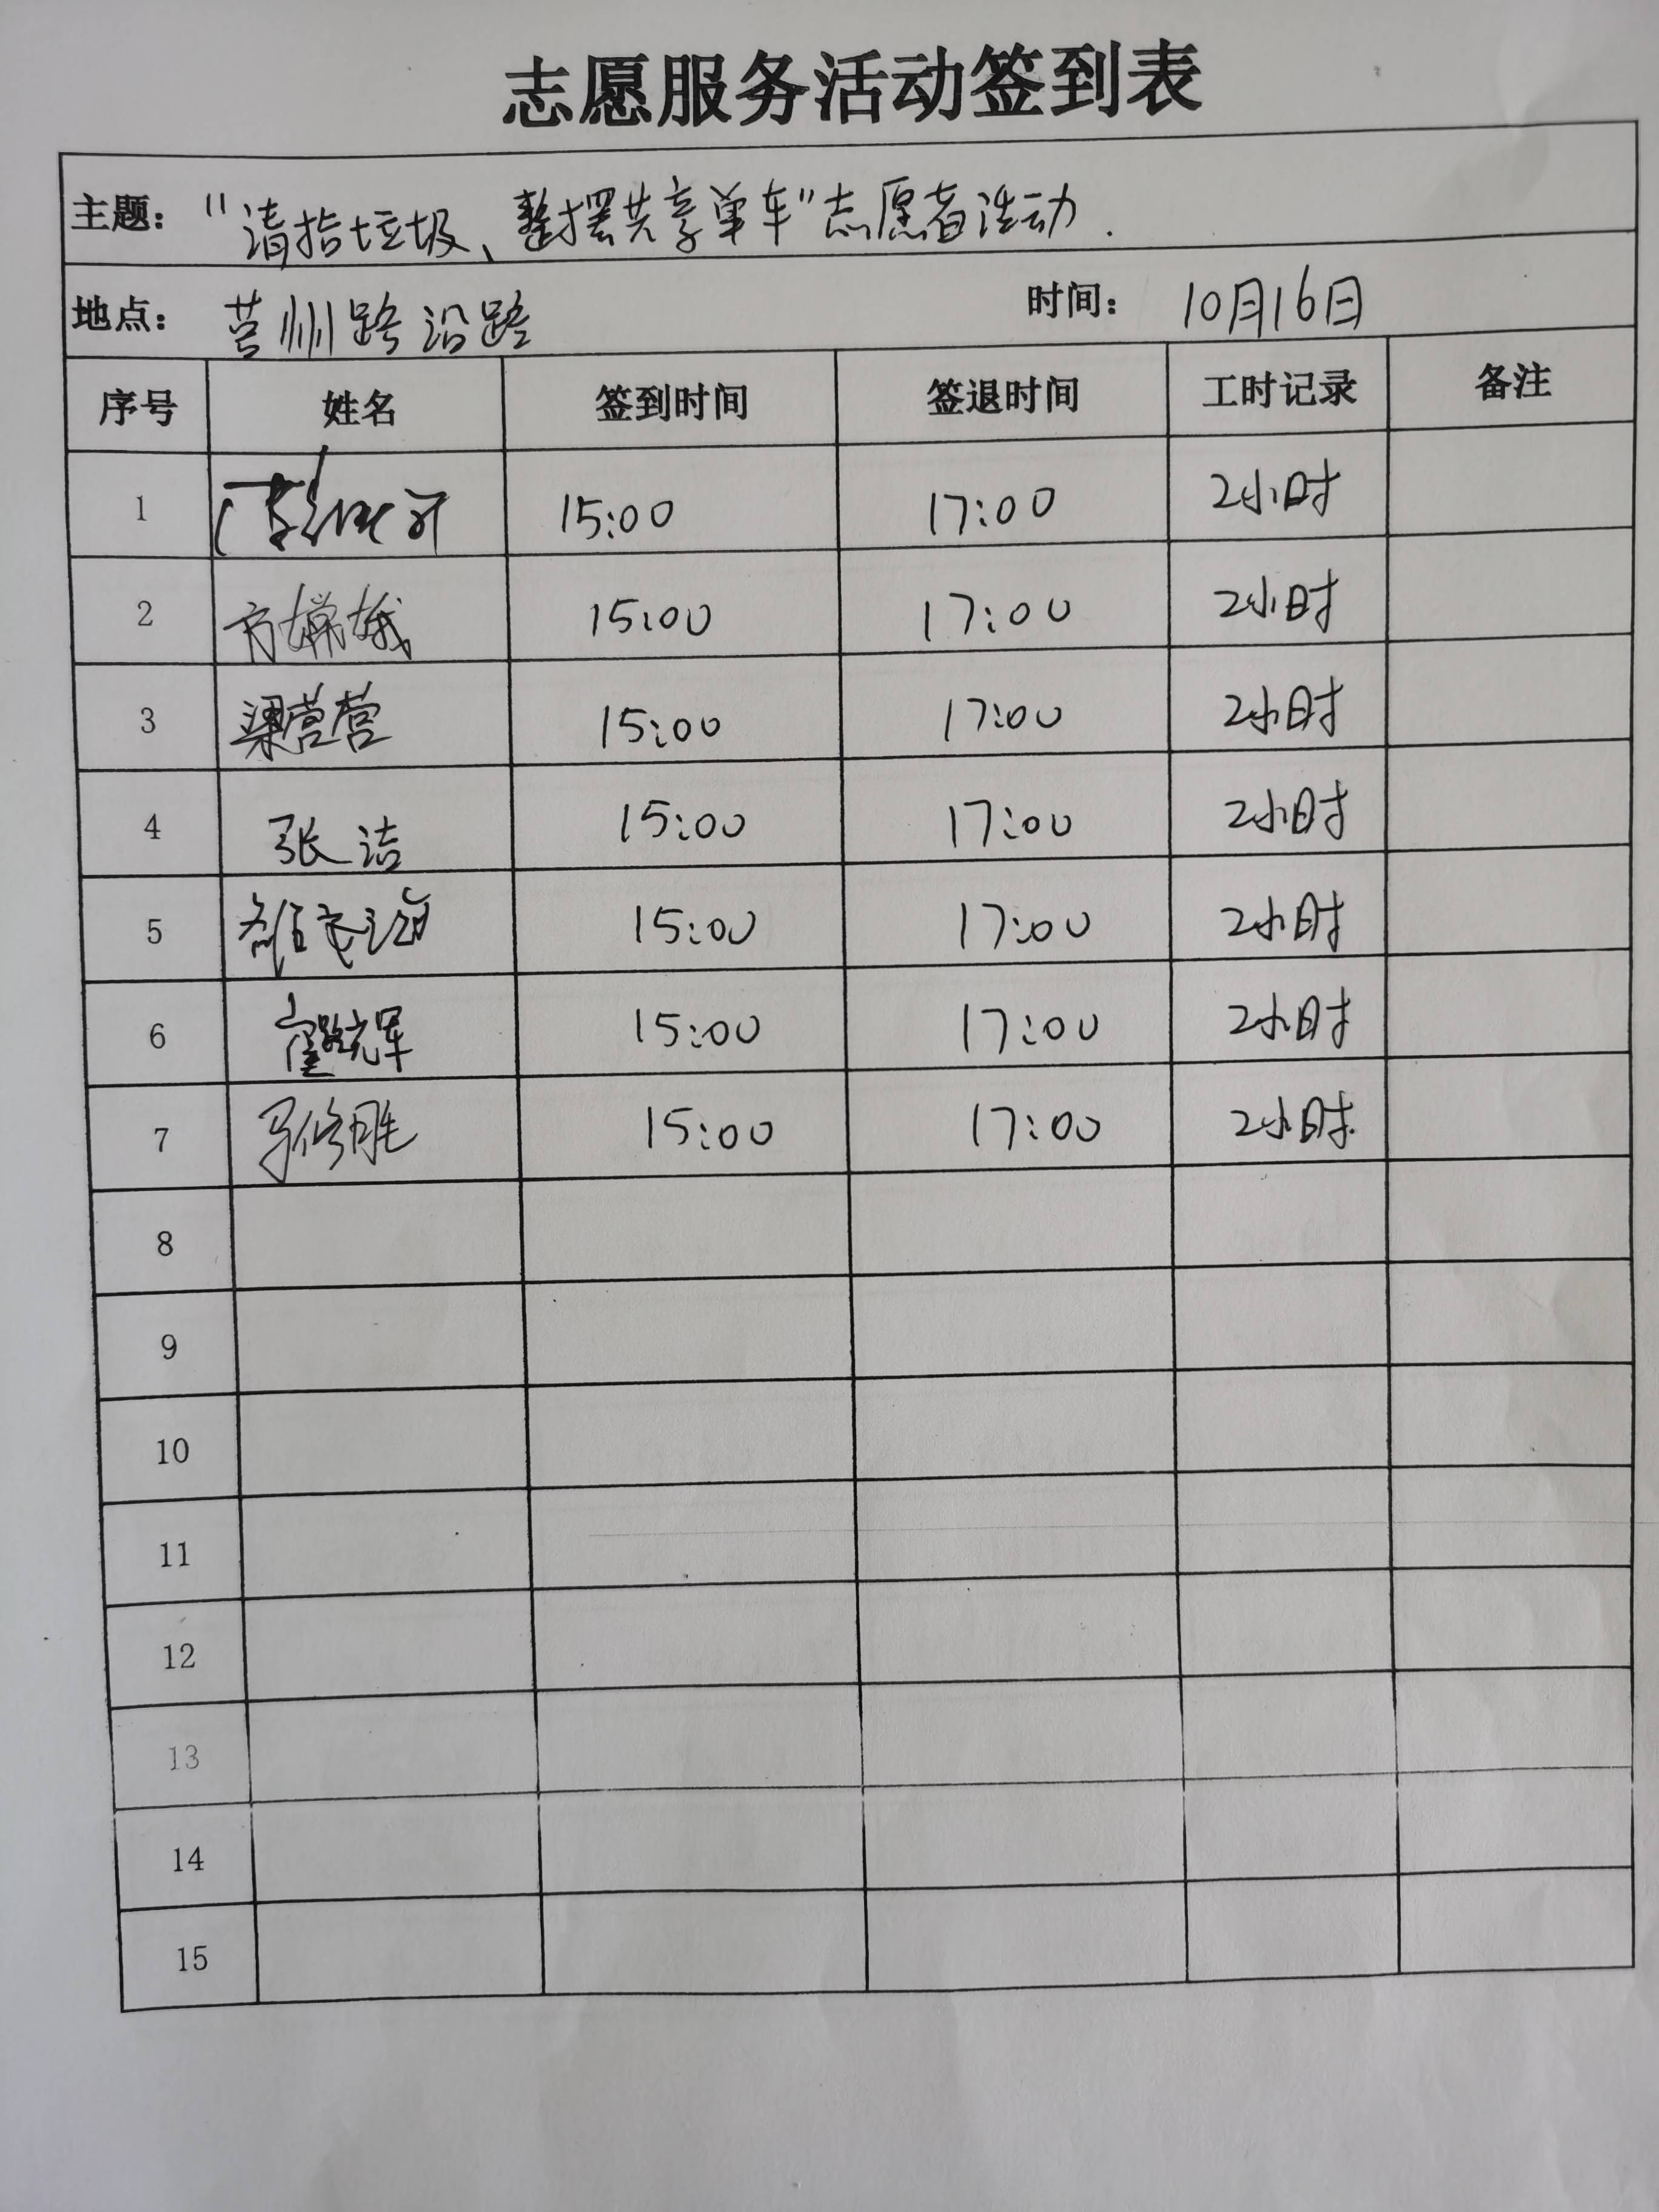 志愿服务活动签到表
主题： "清捡垃圾、整摆共享单车"志愿者活动.
地点： 莒州路沿路 时间： 10月16日
序号 姓名 签到时间 签退时间 工时记录 备注
1 15:00 17:00 2小时
2 方嫦娥 15:00 17:00 2小时
3 梁营营 15:00 17:00 2小时
4 张洁 15:00 17:00 2小时
5 15:00 17:00 2小时
6 15:00 17:00 2小时
7 马修胜 15:00 17:00 2小时
8
9
10
11
12
13
14
15